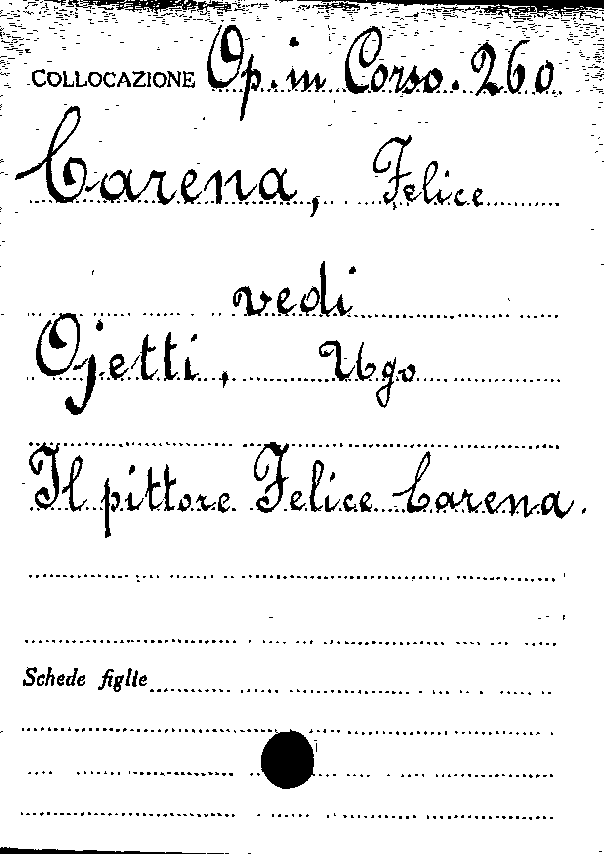 COLLOCAZIONE Op. in Corso. 260
Carena, Felice
vedi
Ojetti, Ugo
Il pittore Felice Carena.
Schede figlie